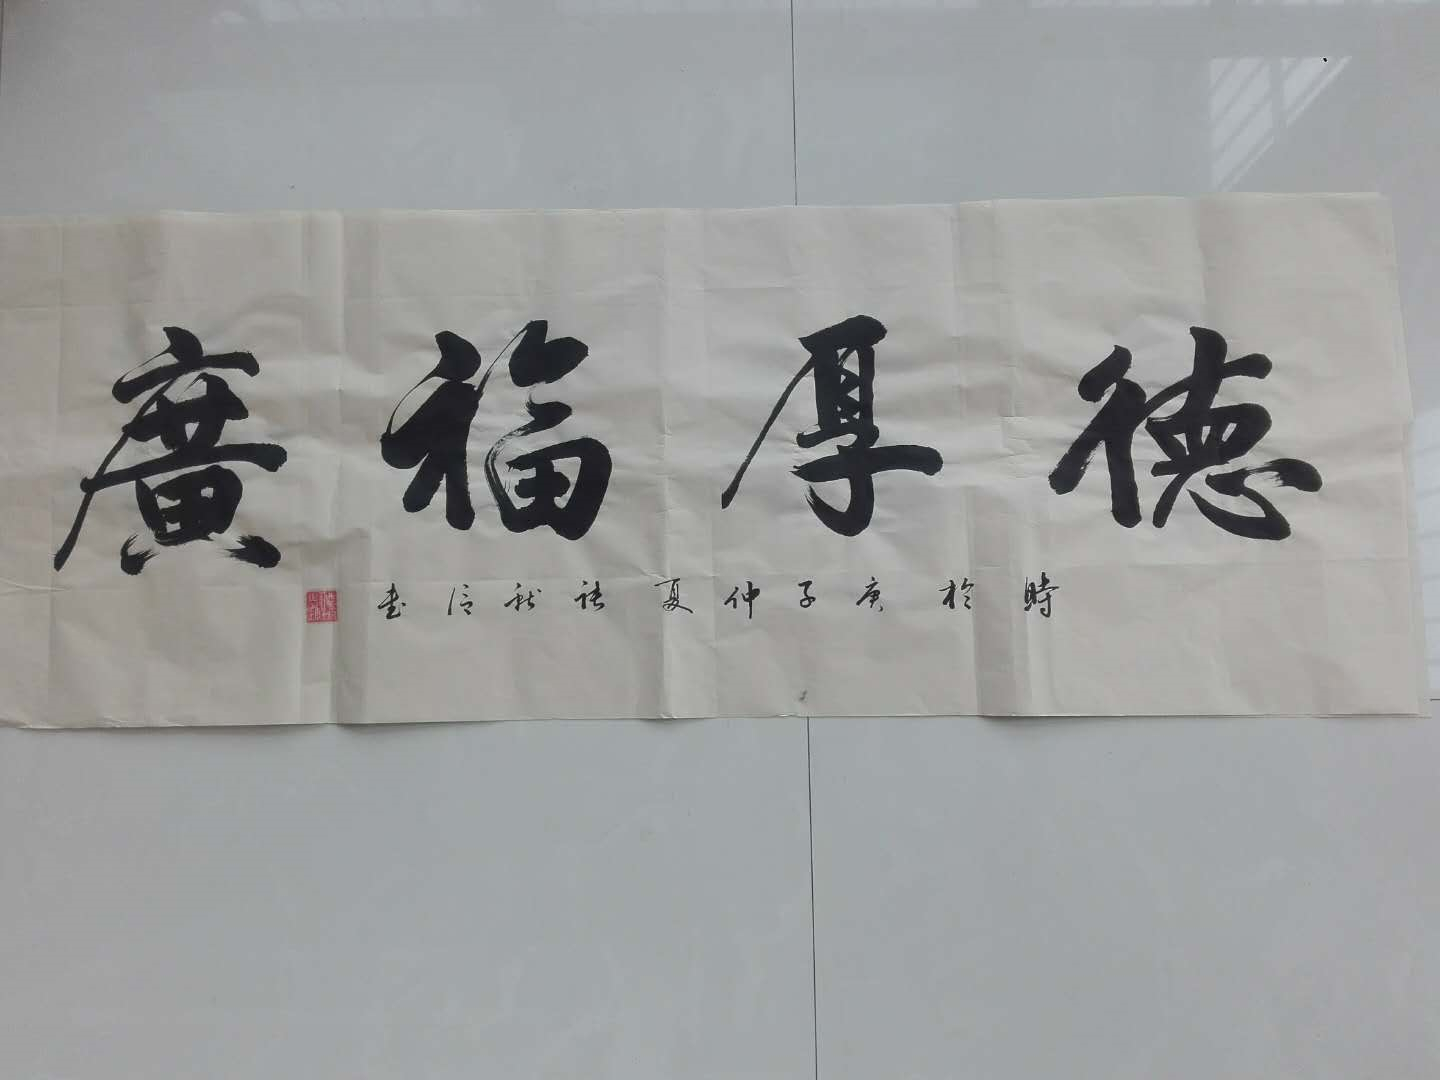 德厚福廣
時於庚子仲夏
書